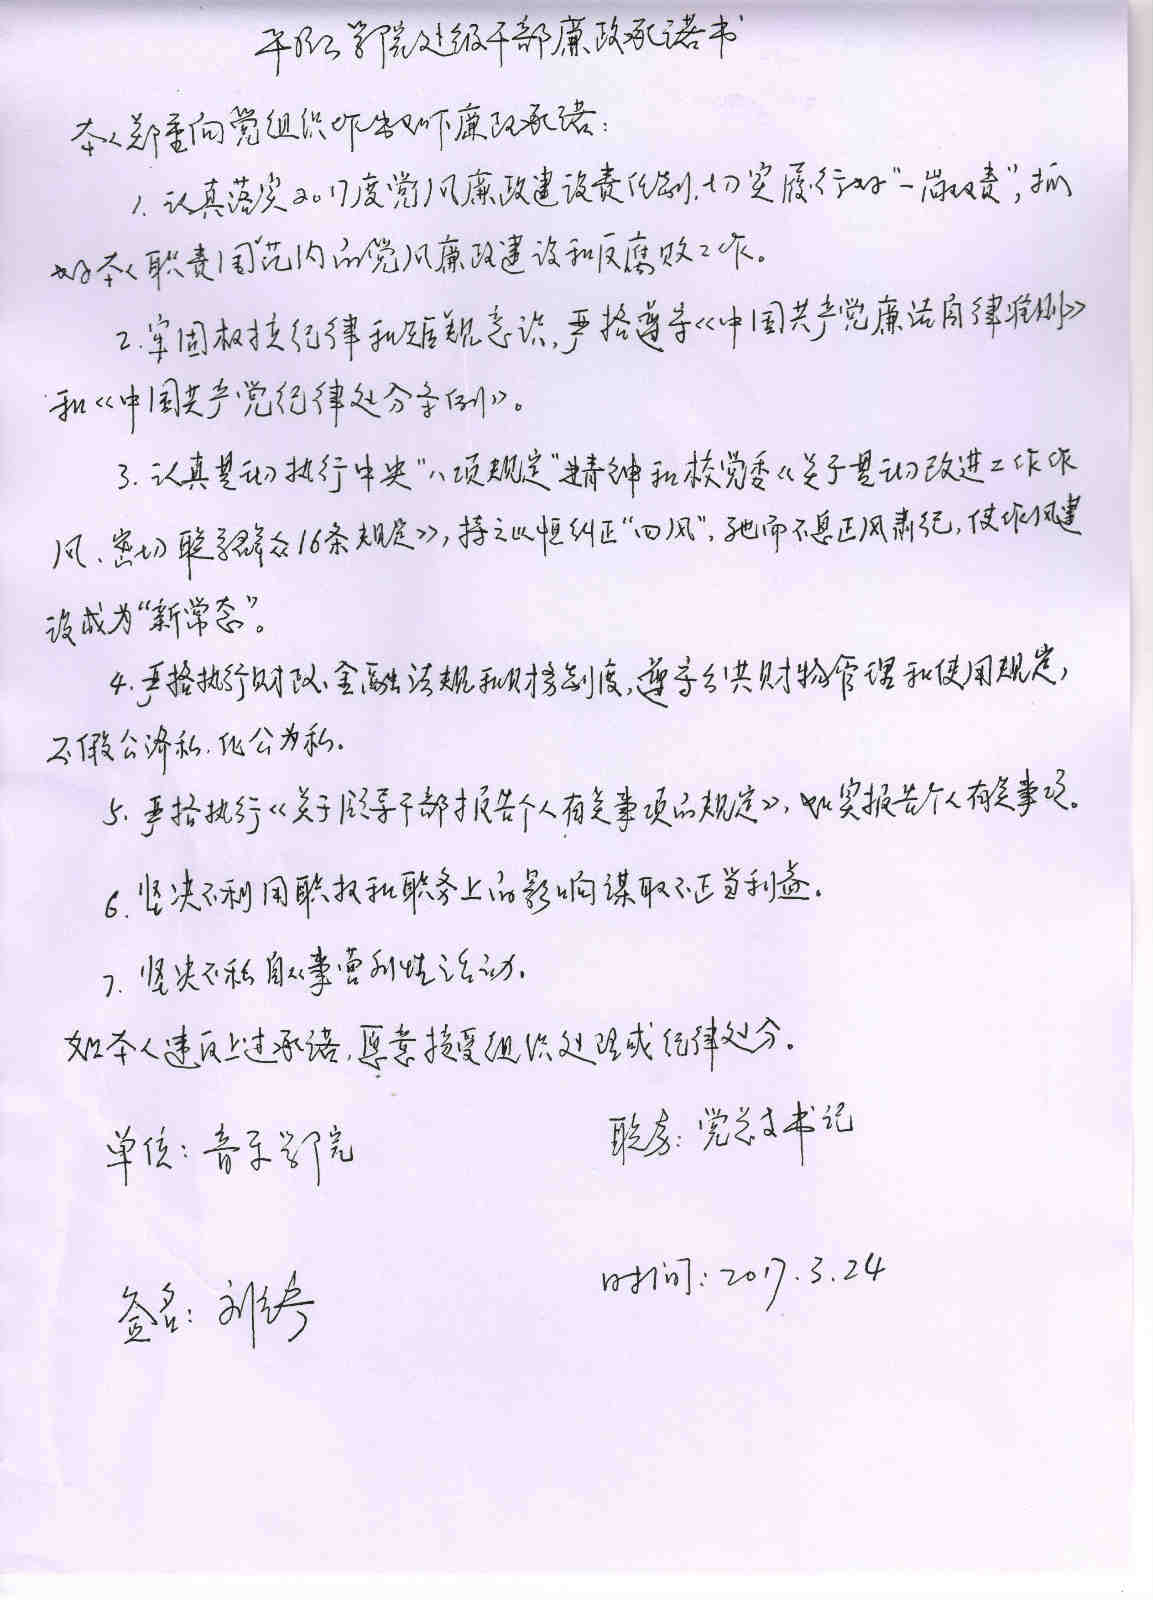 平顶山学院处级干部廉政承诺书
本人郑重向党组织作出如下廉政承诺：
1. 认真落实2017度党风廉政建设责任制，切实履行好“一岗双责”，抓
好本人职责范围内的党风廉政建设和反腐败工作。
2. 牢固树立纪律和规矩意识，严格遵守《中国共产党廉洁自律准则》
和《中国共产党纪律处分条例》。
3. 认真贯彻执行中央“八项规定”精神和校党委《关于贯彻改进工作作
风、密切联系群众16条规定》，持之以恒纠正“四风”，驰而不息正风肃纪，使作风建
设成为“新常态”。
4. 严格执行财政、金融法规和财务制度，遵守公共财物管理和使用规定，
不假公济私、化公为私。
5. 严格执行《关于领导干部报告个人有关事项的规定》，如实报告个人有关事项。
6. 坚决不利用职权和职务上的影响谋取不正当利益。
7. 坚决不私自从事营利性活动。
如本人违反上述承诺，愿意接受组织处理或纪律处分。
单位：音乐学院
职务：党总支书记
签名：刘
时间：2017.3.24